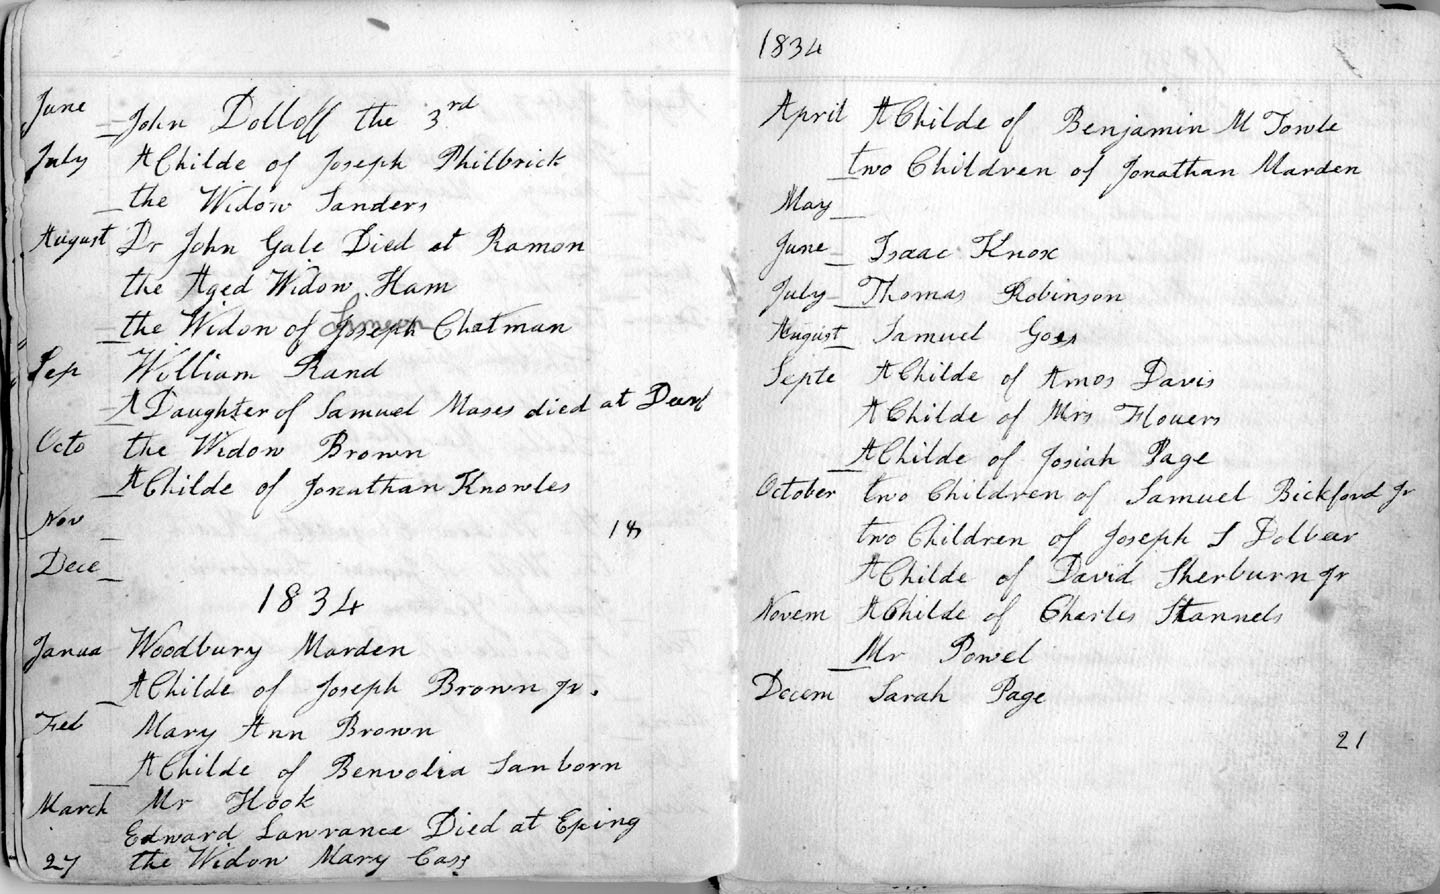 June John Dolloff the 3rd
July A Childe of Joseph Philbrick
the Widow Sanders
August Dr John Gale Died at Ramon
the Aged Widow Ham
the Widow of Joseph Chatman
Sep William Rand
A Daughter of Samuel Moses died at
Octo the Widow Brown
A Childe of Jonathan Knowles
Nov
18
Dece
1834
Janua Woodbury Marden
A Childe of Joseph Brown Jr.
Feb Mary Ann Brown
A Childe of Benvolia Sanborn
March Mr Hook
Edward Lawrance Died at Eping
27 the Widow Mary Cass
1834
April A Childe of Benjamin M Towle
two Children of Jonathan Marden
May
June Isaac Knox
July Thomas Robinson
August Samuel Goss
Septe A Childe of Amos Davis
A Childe of Mrs Flowers
A Childe of Josiah Page
October two Children of Samuel Bickford Jr
two Children of Joseph S Dolbear
A Childe of David Sherburn Jr
Novem A Childe of Charles Stannels
Mr Powel
Decem Sarah Page
21